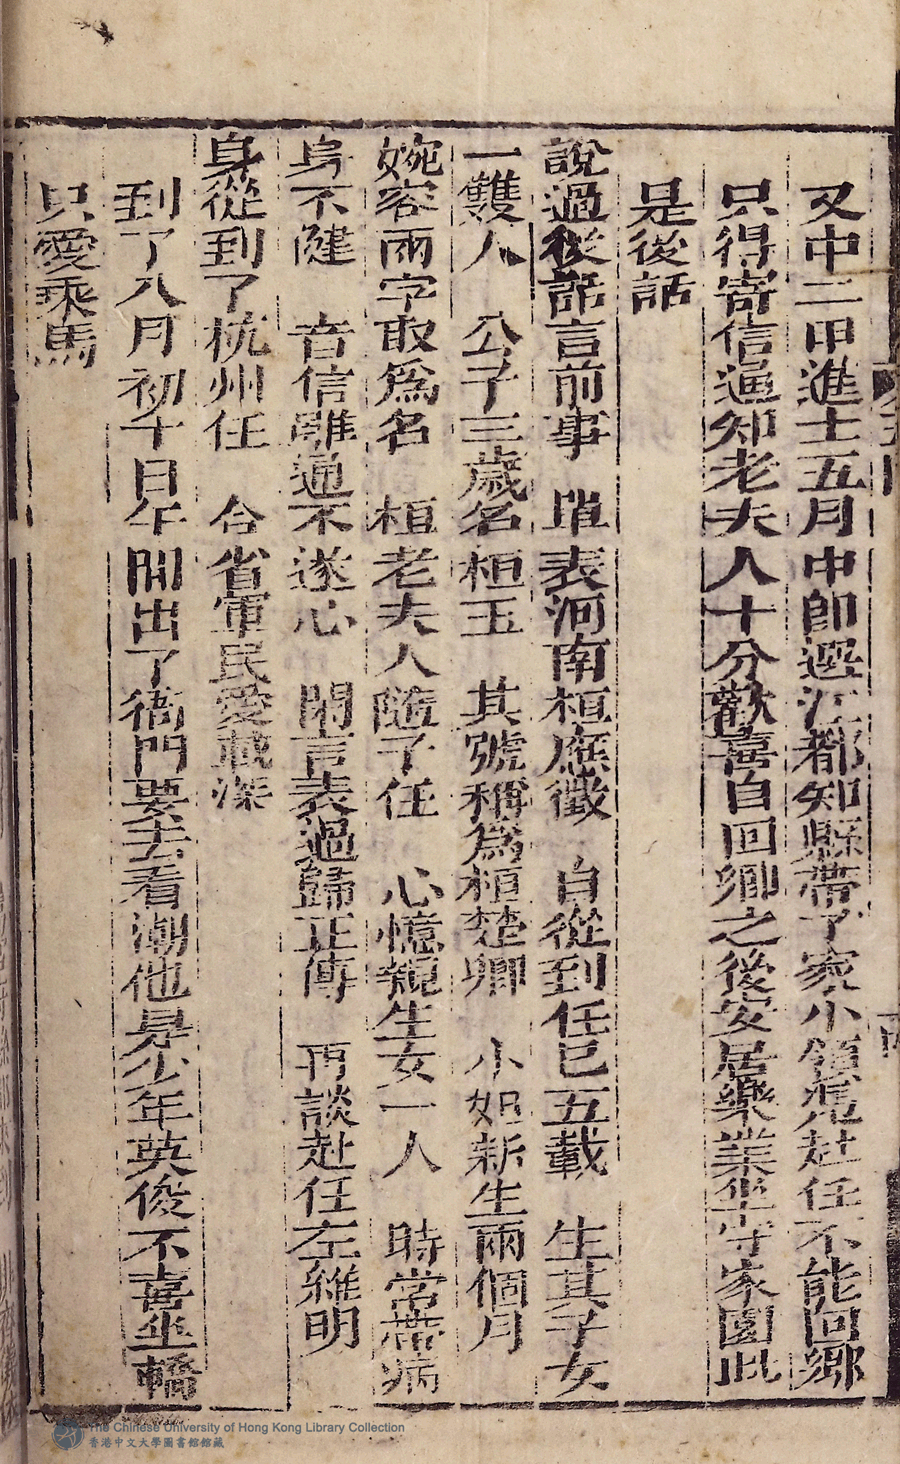 又中二甲進士五月中卽選江都知縣帶了家小領憑赴任不能回鄉
只得寄信通知老夫人十分歡喜自回鄉之後安居樂業坐守家園此
是後話
說過從話言前事 瑣表河南桓應徵 自從到任已五載 生其子女
一雙人 公子三歲名桓玉 其號稱爲桓楚卿 小姐新生兩個月
婉容兩字取爲名 桓老夫人隨子任 心憶親生女一人 時常帶病
身不健 音信雖通不遂心 閑言表過歸正傳 再談赴任左維明
身從到了杭州任 合省軍民愛戴深
到了八月初十日午間出了衙門要去看潮他是少年英俊不喜坐轎
只愛乘馬
The Chinese University of Hong Kong Library Collection
香港中文大學圖書館館藏